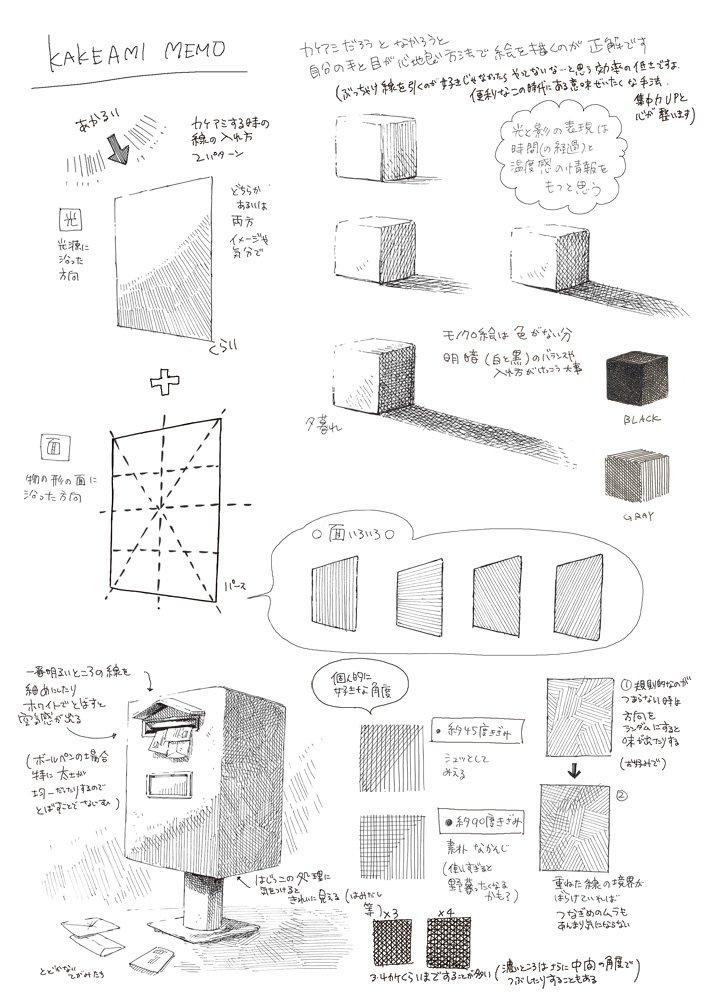 KAKEAMI MEMO
カケアミだろうとなかろうと
自分の手と目が心地良い方法で絵を描くのが正解です
(ぶっちゃけ線を引くのが好きじゃなかったらやってないな…と思う効率の低さですよ
便利なこの時代にある意味ぜいたくな手法.
集中力UPと
心が整います)
あかるい
カケアミする時の
線の入れ方
2パターン
光
光源に
沿った
方向
どちらか
あるいは
両方
イメージや
気分で
くらい
光と影の表現は
時間(の経過)と
温度感の情報を
もつと思う
モノクロ絵は色がない分
明暗(白と黒)のバランスや
入れ方がけっこう大事
夕暮れ
BLACK
GRAY
面
物の形の面に
沿った方向
パース
○面いろいろ○
一番明るいところの線を
細めにしたり
ホワイトでとばすと
空気感が出る
(ボールペンの場合
特に太さが
均一だったりするので
とばすことで
はじっこの処理に
気をつけると
きれいに見える(はみだし
等)
とどかない
てがみたち
個人的に
好きな角度
●約45度きざみ
シュッとして
みえる
●約90度きざみ
素朴なかんじ
(使いすぎると
野暮ったくなる
かも?)
×3
×4
3~4カケくらいまですることが多い
(濃いところはさらに中間の角度で
つぶしたりすることもある
①規則的なのが
つまらない時は
方向を
ランダムにすると
味が出たりする
(お好みで)
②
重ねた線の境界が
ばらけていれば
つなぎめのムラも
あんまり気にならない